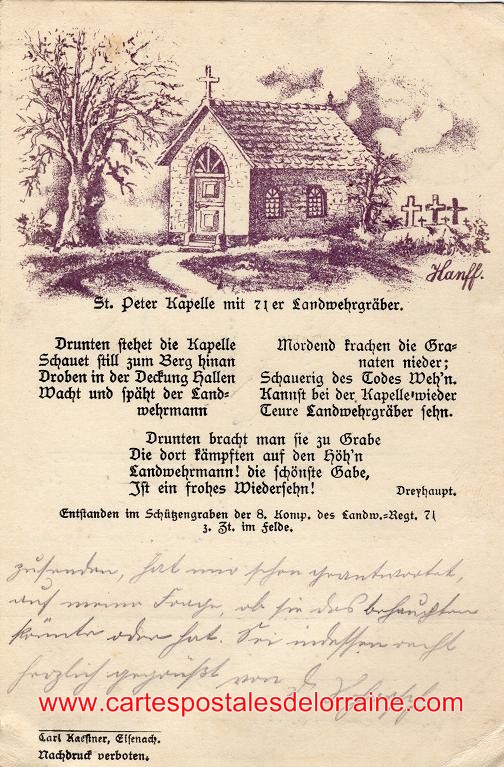 Hanff.
St. Peter Kapelle mit 71er Landwehrgräber.
Drunten stehet die Kapelle
Schauet still zum Berg hinan
Droben in der Deckung Hallen
Wacht und späht der Land-
wehrmann
Mordend krachen die Gra-
naten nieder;
Schauerig des Todes Weh'n.
Kannst bei der Kapelle wieder
Teure Landwehrgräber sehn.
Drunten bracht man sie zu Grabe
Die dort kämpften auf den Höh'n
Landwehrmann! die schönste Gabe,
Ist ein frohes Wiedersehn!
Dreyhaupt.
Entstanden im Schützengraben der 8. Komp. des Landw.-Regt. 71
z. Zt. im Felde.
zusenden, hat mir schon geantwortet,
auf meine Frage, ob sie das behaupten
könnte oder hat. Sei indessen recht
herzlich gegrüßt von
www.cartespostalesdelorraine.com
Carl Kaestner, Eisenach.
Nachdruck verboten.